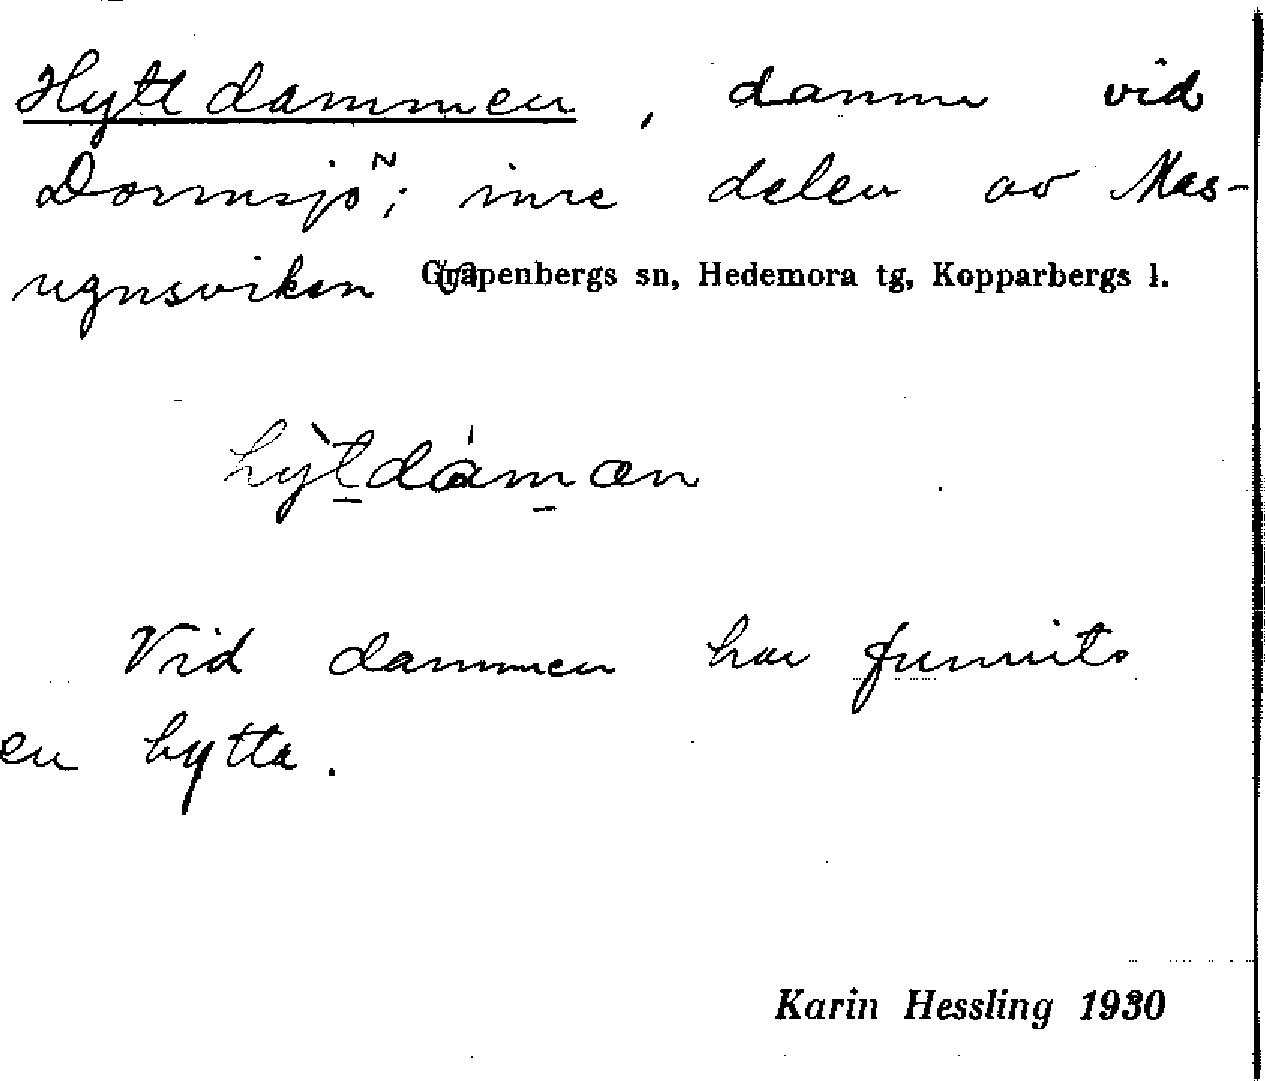 Hyttdammen, damm vid
Dormsjön; inre delen av Mas-
ugnsviken Garpenbergs sn, Hedemora tg, Kopparbergs l.
hỳtdámαn
Vid dammen har funnits
en hytta.
Karin Hessling 1930